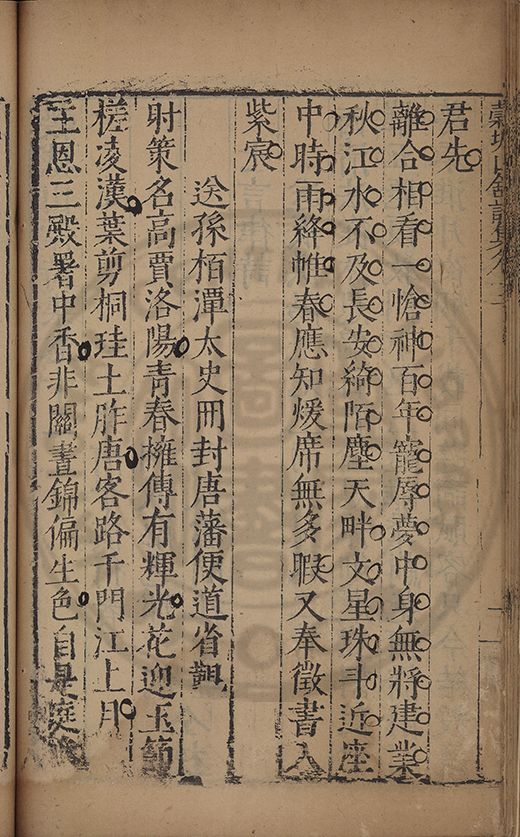 穀城山館詩集卷
君先
離合相看一愴神百年寵辱夢中身無將建業
秋江水不及長安綺陌塵天畔文星珠斗近座
中時雨絳帷春應知煖席無多暇又奉徵書入
紫宸
送孫栢潭太史冊封唐藩便道省覲
射策名高賈洛陽青春擁傳有輝光花迎玉節
槎凌漢葉剪桐珪土胙唐客路千門江上月
主恩三殿署中香非關晝錦偏生色自是庭